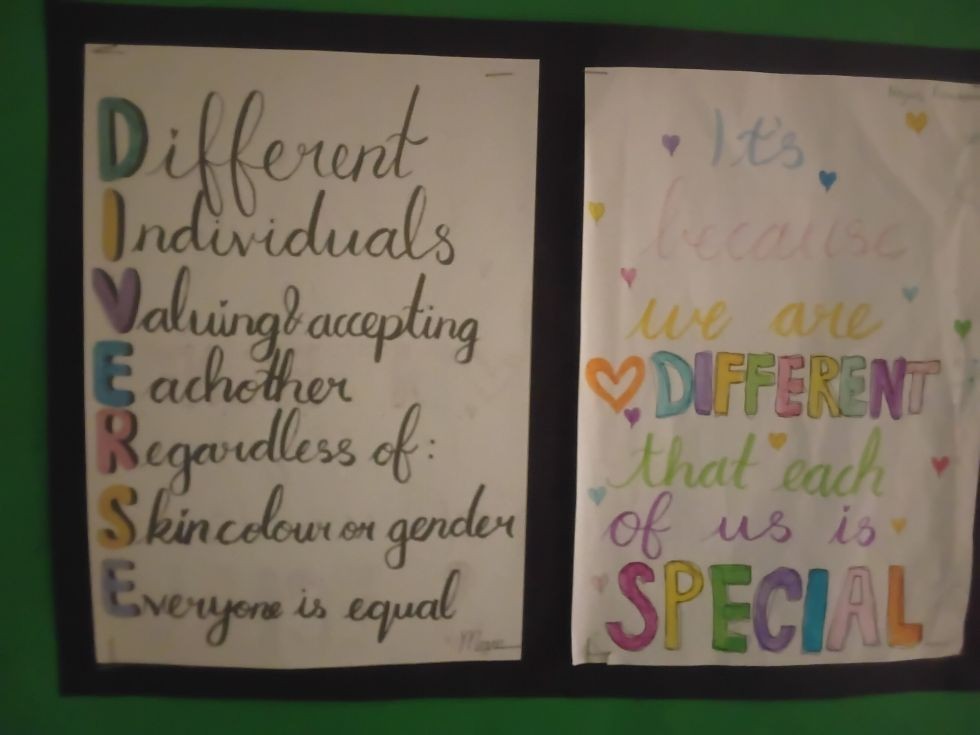 Different
Individuals
Valuing & accepting
Eachother
Regardless of:
Skin colour or gender
Everyone is equal
It's
because
we are
DIFFERENT
that each
of us is
SPECIAL